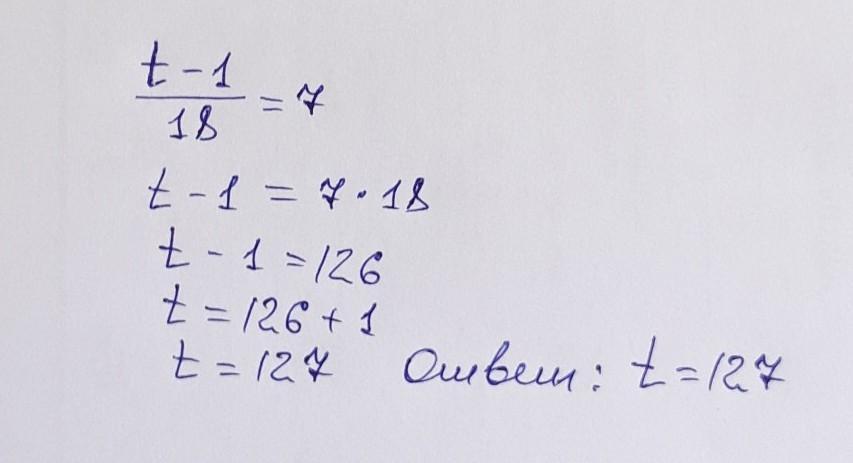 t - 1
18 = 7
t - 1 = 7 · 18
t - 1 = 126
t = 126 + 1
t = 127 Ответ: t = 127